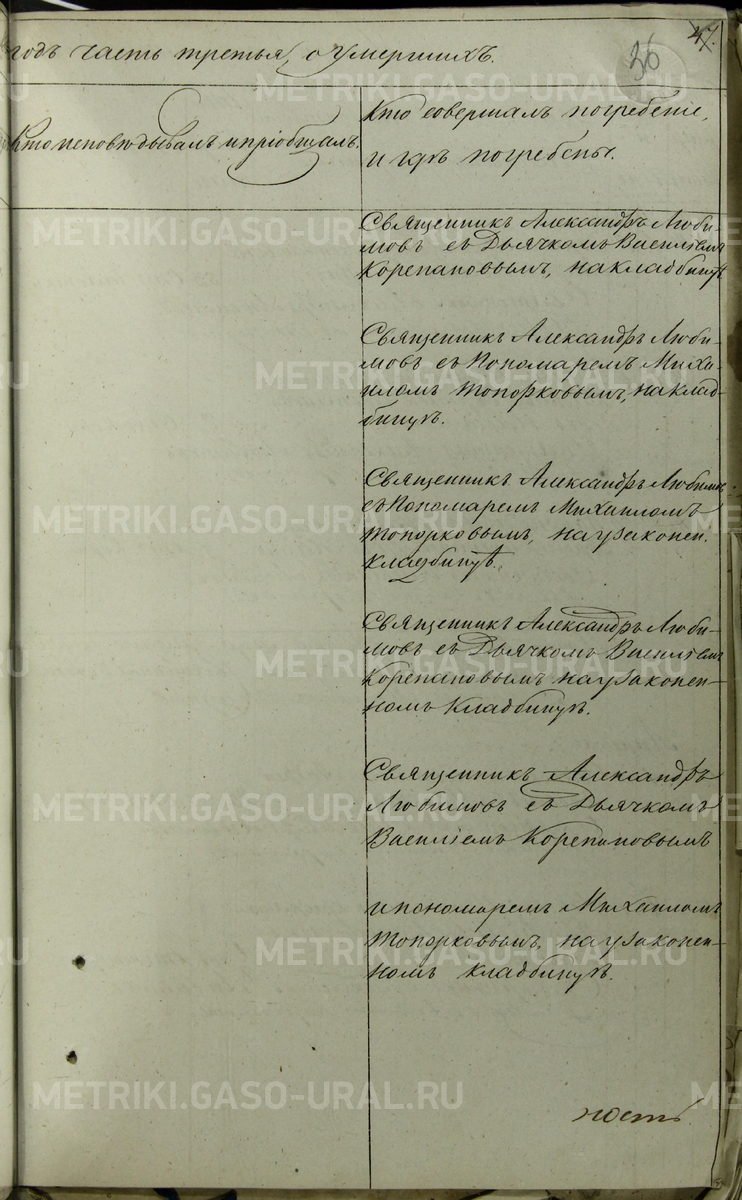 47.
36
годъ часть третья, о умершихъ.
Кто исповѣдывалъ и пріобщалъ.
Кто совершалъ погребеніе,
и гдѣ погребены.
Священникъ Александръ Люби-
мовъ съ Дьячкомъ Василіемъ
Корепановымъ, на кладбищѣ
Священникъ Александръ Люби-
мовъ съ Пономаремъ Миха-
иломъ Топорковымъ, на клад-
бищѣ.
Священникъ Александръ Любимовъ
съ Пономаремъ Михаиломъ
Топорковымъ, на узаконен.
кладбищѣ.
Священникъ Александръ Люби-
мовъ съ Дьячкомъ Василіемъ
Корепановымъ на узаконен-
номъ кладбищѣ.
Священникъ Александръ
Любимовъ съ Дьячкомъ
Василіемъ Корепановымъ
и пономаремъ Михаиломъ
Топорковымъ, на узаконен-
номъ кладбищѣ.
ность
METRIKI.GASO-URAL.RU